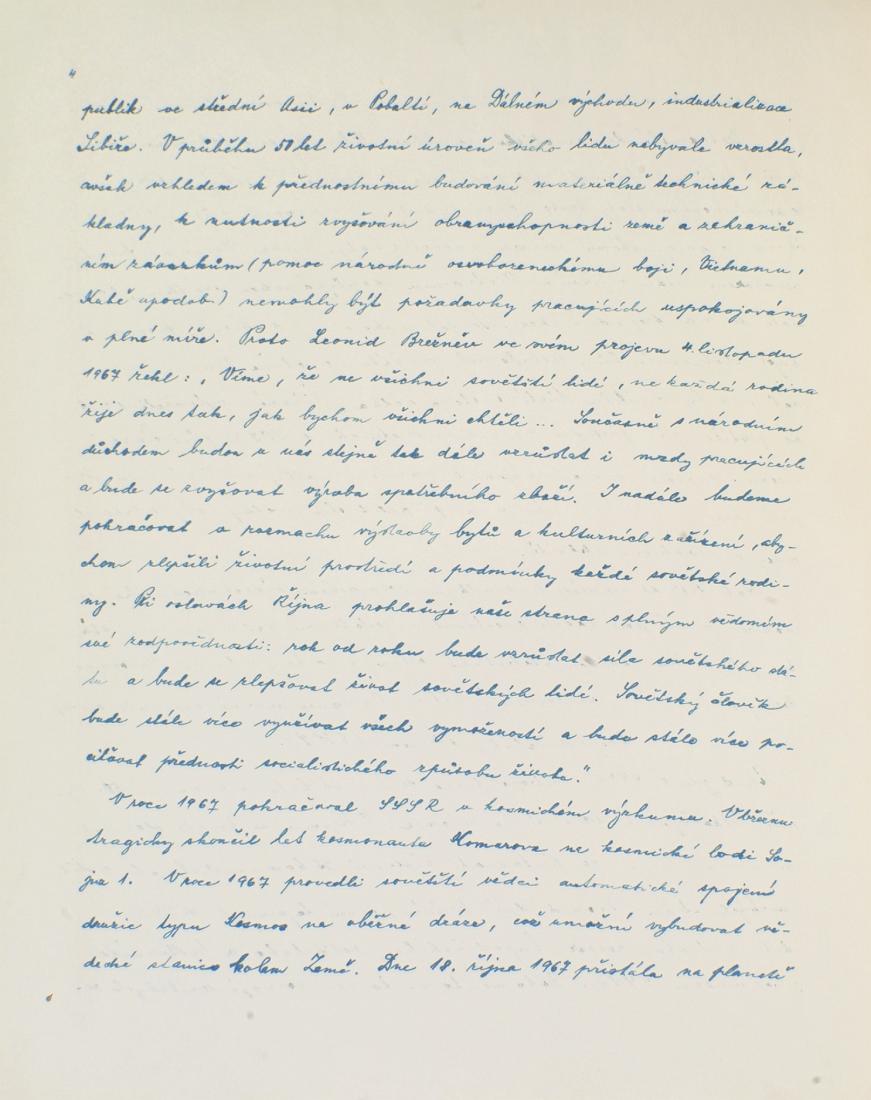 4
publik ve střední Asii, v Pobaltí, na Dálném východu, industrializace
Sibiře. V průběhu 50 let životní úroveň všeho lidu nebývale vzrostla,
avšak vzhledem k přednostnímu budování materiálně technické zá-
kladny, k nutnosti zvyšování obranyschopnosti země a zahranič-
ním závazkům (pomoc národně osvobozeneckému boji, Vietnamu,
Kubě apodob.) nemohly být požadavky pracujících uspokojovány
v plné míře. Proto Leonid Brežněv ve svém projevu 4. listopadu
1967 řekl: „Víme, že ne všichni sovětští lidé, ne každá rodina
žije dnes tak, jak bychom všichni chtěli... Současně s národním
důchodem budou u nás stejně tak dále vzrůstat i mzdy pracujících
a bude se zvyšovat výroba spotřebního zboží. I nadále budeme
pokračovat v rozmachu výstavby bytů a kulturních zařízení, aby-
chom zlepšili životní prostředí a podmínky každé sovětské rodi-
ny. Při oslavách Října prohlašuje naše strana s plným vědomím
své zodpovědnosti: rok od roku bude vzrůstat síla sovětského stá-
tu a bude se zlepšovat život sovětských lidí. Sovětský člověk
bude stále více využívat všech vymožeností a bude stále více po-
ciťovat přednosti socialistického způsobu života."
V roce 1967 pokračoval SSSR v kosmickém výzkumu. V březnu
tragicky skončil let kosmonauta Komarova na kosmické lodi So-
juz 1. V roce 1967 provedli sovětští vědci automatické spojení
družic typu Kosmos na oběžné dráze, což umožní vybudovat vě-
decké stanice kolem Země. Dne 18. října 1967 přistála na planetě